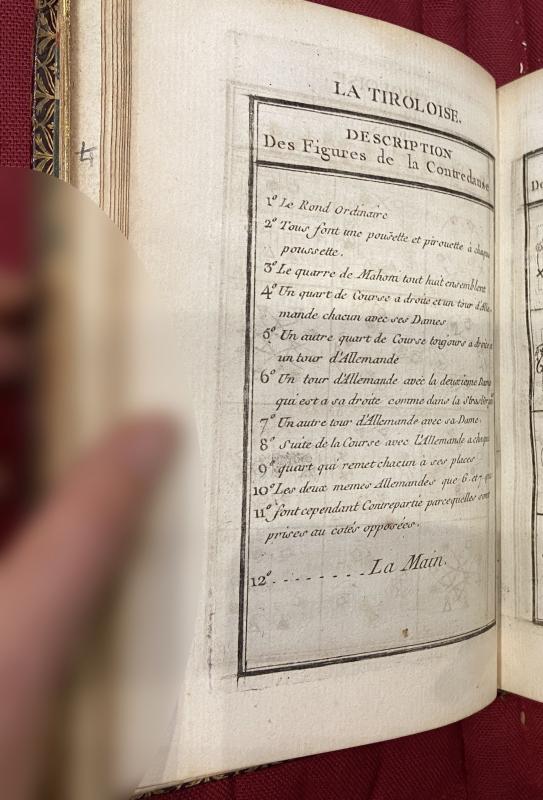 LA TIROLOISE.
DESCRIPTION
Des Figures de la Contredanse
1º Le Rond Ordinaire
2º Tous font une pousette et pirouette à chaque
poussette.
3º Le quarre de Mahoni tout huit ensemblent
4º Un quart de Course a droite et un tour d'Alle-
mande chacun avec ses Dames
5º Un autre quart de Course toujours a droite et
un tour d'Allemande
6º Un tour d'Allemande avec la deuxieme Dame
qui est a sa droite comme dans la
7º Un autre tour d'Allemande avec sa Dame.
8º Suite de la Course avec L'Allemande a chaque
9º quart qui remet chacun à ses places
10º Les deux memes Allemandes que 6. et 7. qui
11º font cependant Contrepartie parcequelles sont
prises au cotés opposées.
12º . . . . . . . . La Main.